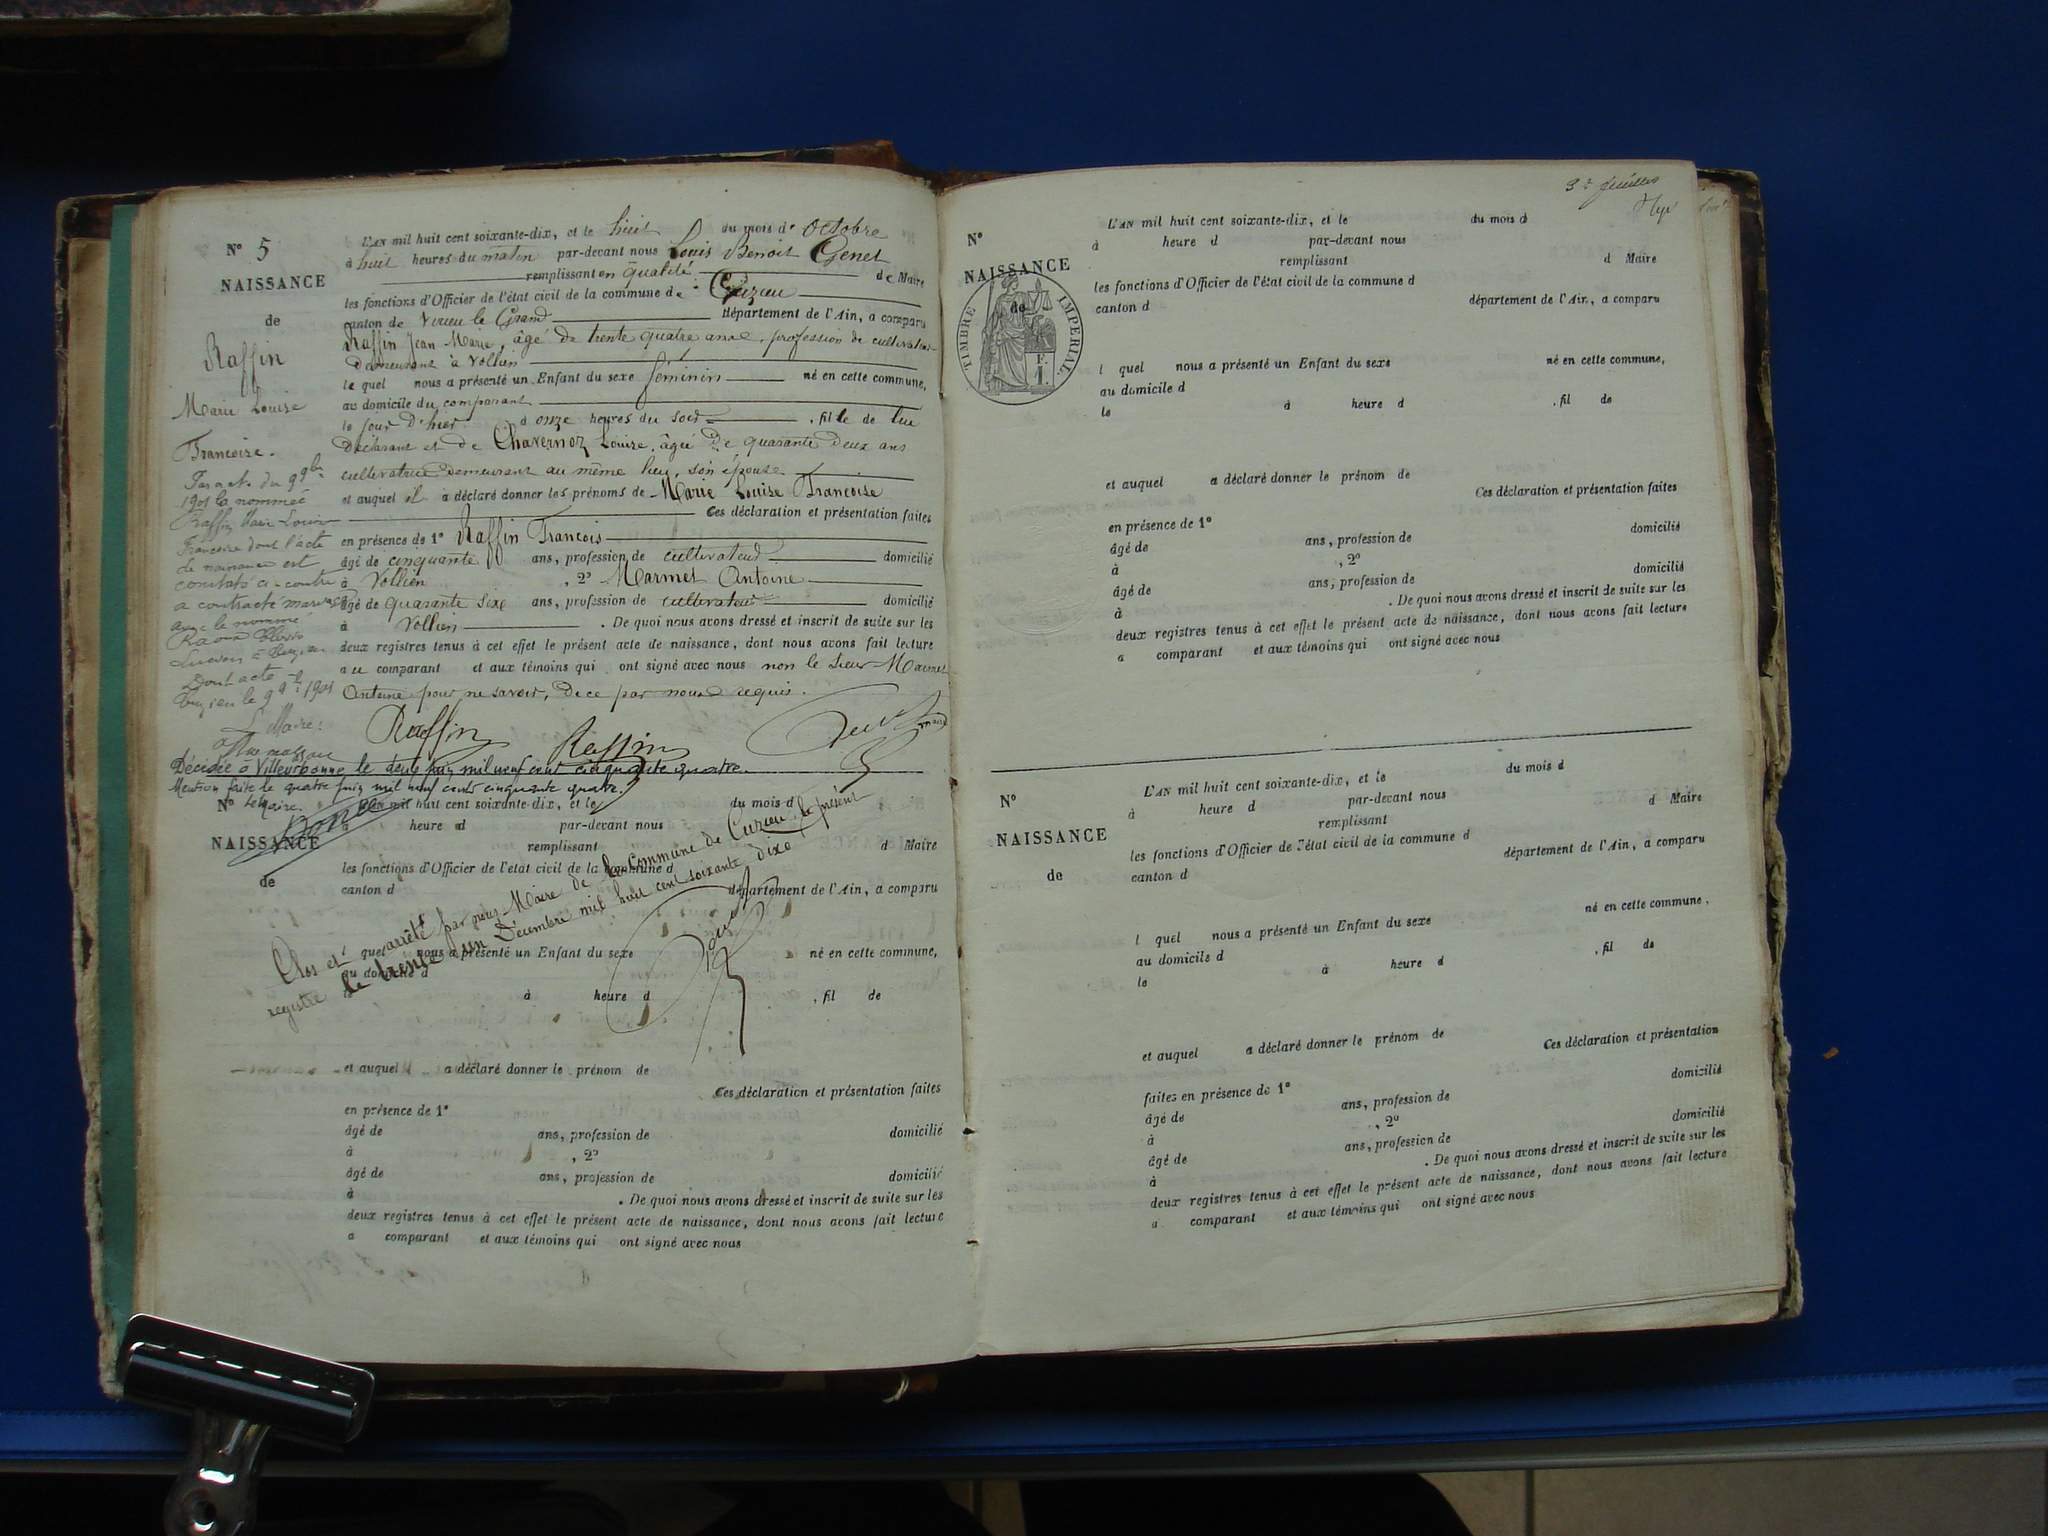 N° 5
NAISSANCE
de
Raffin
Marie Louise
Francoise.
Par act. du 9 9bre
1901 la nommée
Raffin Marie Louise
Francoise dont l'acte
de naissance est
constaté ci-contre
a contracté mariage
avec le nommé
Dont acte
le 9 9bre 1901
Le Maire:
L'AN mil huit cent soixante-dix, et le huit du mois d'Octobre
à huit heures du matin par-devant nous Louis Benoit Genet
remplissant en qualité de Maire
les fonctions d'Officier de l'état civil de la commune de Cuzieu
canton de Virieu le Grand département de l'Ain, a comparu
Raffin Jean Marie, âgé de trente quatre ans, profession de cultivateur
demeurant à Vollien
le quel nous a présenté un Enfant du sexe féminin né en cette commune,
au domicile du comparant
le jour d'hier à onze heures du soir, fille de lui
Déclarant et de Chavernoz Louise, âgée de quarante deux ans
cultivatrice demeurant au même lieu, son épouse
et auquel il a déclaré donner les prénoms de Marie Louise Francoise
Ces déclaration et présentation faites
en présence de 1° Raffin Francois
âgé de cinquante ans, profession de cultivateur domicilié
à Vollien, 2° Marmet Antoine
âgé de quarante six ans, profession de cultivateur domicilié
à Vollien. De quoi nous avons dressé et inscrit de suite sur les
deux registres tenus à cet effet le présent acte de naissance, dont nous avons fait lecture
au comparant et aux témoins qui ont signé avec nous non le sieur Marmet
Antoine pour ne savoir, de ce par nous requis.
Raffin Raffin
Décédée à Villeurbanne, le deux juin mil neuf cent cinquante quatre.
Mention faite le quatre juin mil neuf cent cinquante quatre.
Le Maire.
N°
NAISSANCE
de
L'AN mil huit cent soixante-dix, et le du mois d
à heure d par-devant nous
remplissant d Maire
les fonctions d'Officier de l'état civil de la commune d
canton d département de l'Ain, a comparu
l quel nous a présenté un Enfant du sexe né en cette commune,
au domicile d
à heure d , fil de
Clos et arrêté par nous Maire de la Commune de Cuzieu le présent
registre le trente un Décembre mil huit cent soixante dix
et auquel a déclaré donner le prénom de
Ces déclaration et présentation faites
en présence de 1°
âgé de ans, profession de domicilié
à , 2°
âgé de ans, profession de domicilié
à . De quoi nous avons dressé et inscrit de suite sur les
deux registres tenus à cet effet le présent acte de naissance, dont nous avons fait lecture
a comparant et aux témoins qui ont signé avec nous
N°
NAISSANCE
de
TIMBRE IMPERIAL
F.
1.
L'AN mil huit cent soixante-dix, et le du mois d
à heure d par-devant nous
remplissant d Maire
les fonctions d'Officier de l'état civil de la commune d
canton d département de l'Ain, a comparu
l quel nous a présenté un Enfant du sexe né en cette commune,
au domicile d
le à heure d , fil de
et auquel a déclaré donner le prénom de
Ces déclaration et présentation faites
en présence de 1°
âgé de ans, profession de domicilié
à , 2°
âgé de ans, profession de domicilié
à . De quoi nous avons dressé et inscrit de suite sur les
deux registres tenus à cet effet le présent acte de naissance, dont nous avons fait lecture
a comparant et aux témoins qui ont signé avec nous
N°
NAISSANCE
de
L'AN mil huit cent soixante-dix, et le du mois d
à heure d par-devant nous
remplissant d Maire
les fonctions d'Officier de l'état civil de la commune d
canton d département de l'Ain, a comparu
l quel nous a présenté un Enfant du sexe né en cette commune.
au domicile d
le à heure d , fil de
et auquel a déclaré donner le prénom de
Ces déclaration et présentation
faites en présence de 1° domicilié
âgé de ans, profession de
à , 2° domicilié
âgé de ans, profession de
à . De quoi nous avons dressé et inscrit de suite sur les
deux registres tenus à cet effet le présent acte de naissance, dont nous avons fait lecture
a comparant et aux témoins qui ont signé avec nous